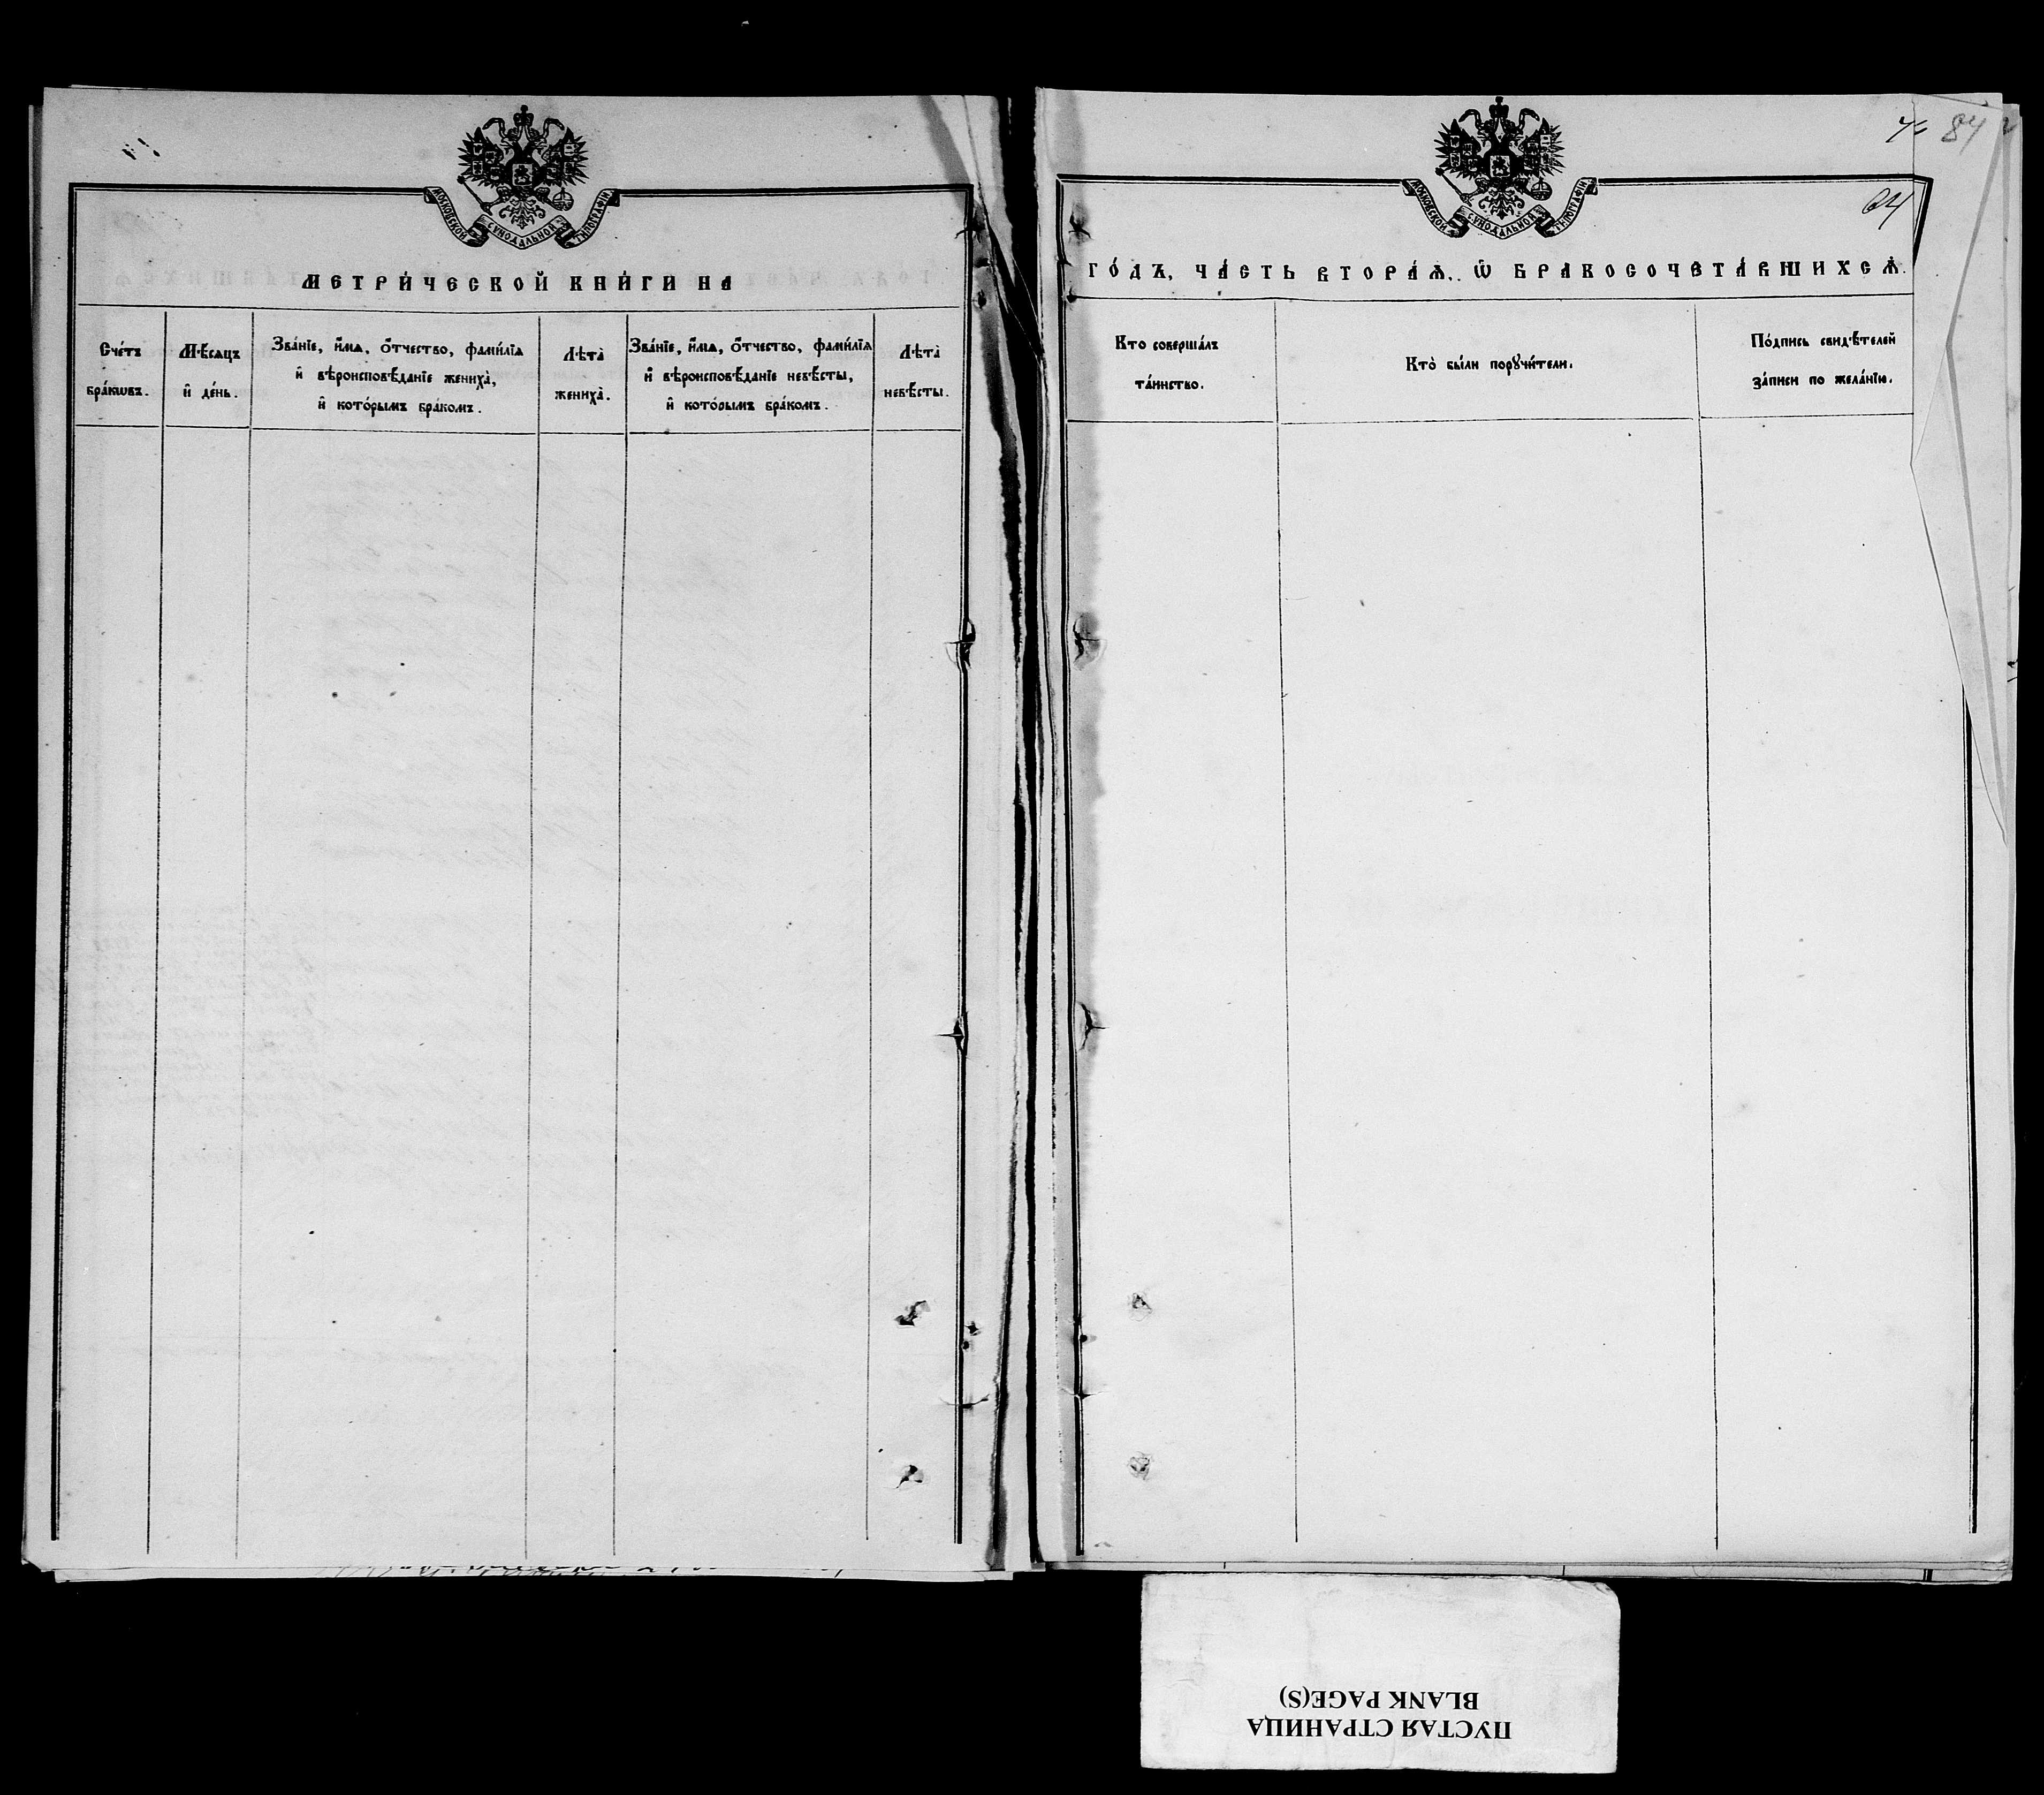 МОСКОВСКОЙ СѴНОДАЛЬНОЙ ТѴПОГРАФІИ
МЕТРИ́ЧЕСКОЙ КНИ́ГИ НА
Сче́тъ
бра́кѡвъ.
М·ѣсяцъ
и҆ де́нь.
Зва́нїе, и҆́мѧ, ѻ҆́тчество, фами́лїѧ
и҆ вѣроисповѣ́данїе жениха̀,
и҆ кото́рымъ бра́комъ.
Лѣта̀
жениха̀.
Зва́нїе, и҆́мѧ, ѻ҆́тчество, фами́лїѧ
и҆ вѣроисповѣ́данїе невѣ́сты,
и҆ кото́рымъ бра́комъ.
Лѣта̀
невѣ́сты.
84
МОСКОВСКОЙ СѴНОДАЛЬНОЙ ТѴПОГРАФІИ
ГО́ДЪ, ЧА́СТЬ ВТОРА́Ѧ, Ѡ҆ БРАКОСОЧЕТА́ВШИХСѦ.
Кто соверша́лъ
та́инство.
Кто̀ бы́ли порꙋчи́тели.
По́дпись свидѣ́телей
за́писи по жела́нїю.
ПУСТАЯ СТРАНИЦА
BLANK PAGE(S)